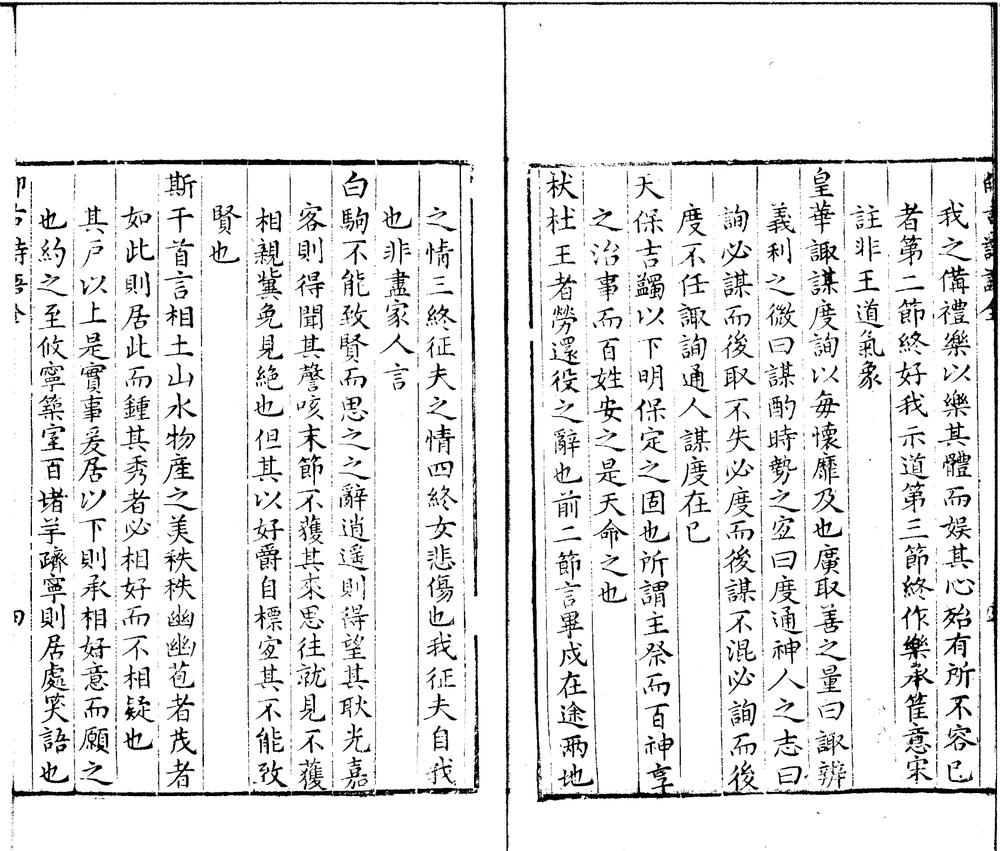 我之備禮樂以樂其體而娱其心殆有所不容已
者第二節終好我示道第三節終作樂承筐意宋
註非王道氣象
皇華諏謀度詢以每懷靡及也廣取善之量曰諏辨
義利之微曰謀酌時勢之宜曰度通神人之志曰
詢必謀而後取不失必度而後謀不混必詢而後
度不任諏詢通人謀度在已
天保吉蠲以下明保定之固也所謂主祭而百神享
之治事而百姓安之是天命之也
杕杜王者勞還役之辭也前二節言畢戍在途兩地
之情三終征夫之情四終女悲傷也我征夫自我
也非盡家人言
白駒不能致賢而思之之辭逍遥則得望其耿光嘉
客則得聞其謦咳末節不獲其来思往就見不獲
相親兾免見絶也但其以好爵自標宜其不能致
賢也
斯干首言相土山水物産之美秩秩幽幽苞者茂者
如此則居此而鍾其秀者必相好而不相疑也
其戸以上是實事爰居以下則承相好意而願之
也約之至攸寧築室百堵羊躋寧則居處笑語也
四